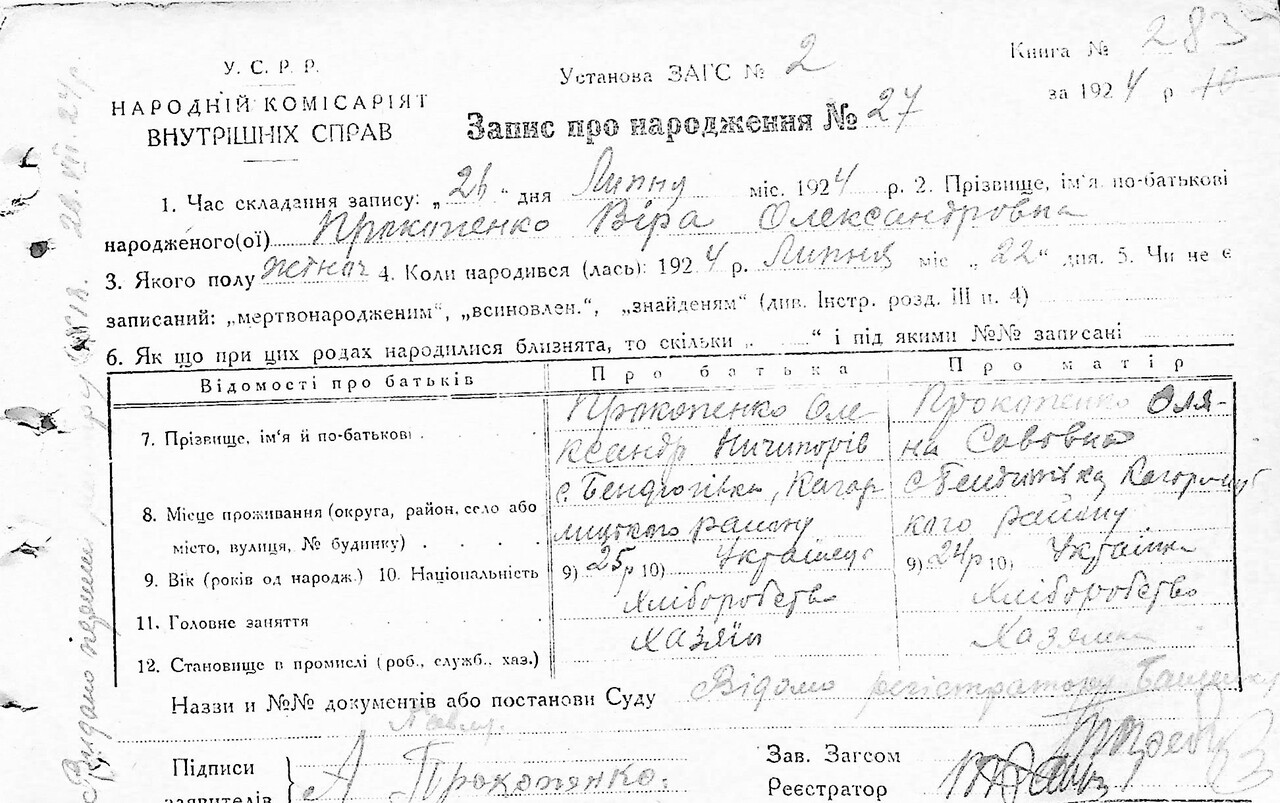 У. С. Р. Р.
НАРОДНІЙ КОМІСАРІЯТ
ВНУТРІШНІХ СПРАВ
Установа ЗАГС № 2
Книга № 283
за 1924 р 10
Запис про народження № 27
1. Час складання запису: „26“ дня Липня міс. 1924 р. 2. Прізвище, ім'я по-батькові
народженого(ої) Прокопенко Віра Олександровна
3. Якого полу жіноч 4. Коли народився (лась): 1924 р. Липня міс „22“ дня. 5. Чи не є
записаний: „мертвонародженим“, „всиновлен.“, „знайденям“ (див. Інстр. розд. III п. 4)
6. Як що при цих родах народилися близнята, то скільки „ “ і під якими №№ записані
Відомості про батьків Про батька Про матір
7. Прізвище, ім'я й по-батькові Прокопенко Оле-
ксандр Ничипорів Прокопенко Оля-
на Савовна
8. Місце проживання (округа, район, село або
місто, вулиця, № будинку) с. Бендюгівка, Кагар
лицького району с Бендюгівка Кагарлиць
кого району
9. Вік (років од народж.) 10. Національність 9) 25р 10) Українець 9) 24р 10) Українка
11. Головне заняття Хліборобство Хліборобство
12. Становище в промислі (роб., служб., хаз.) Хазяїн Хазяйка
Наззи и №№ документів або постанови Суду Відомо регістратору
Підписи
заявителів
А Прокопенко.
Зав. Загсом
Реєстратор
Видано
28.VII.24р.